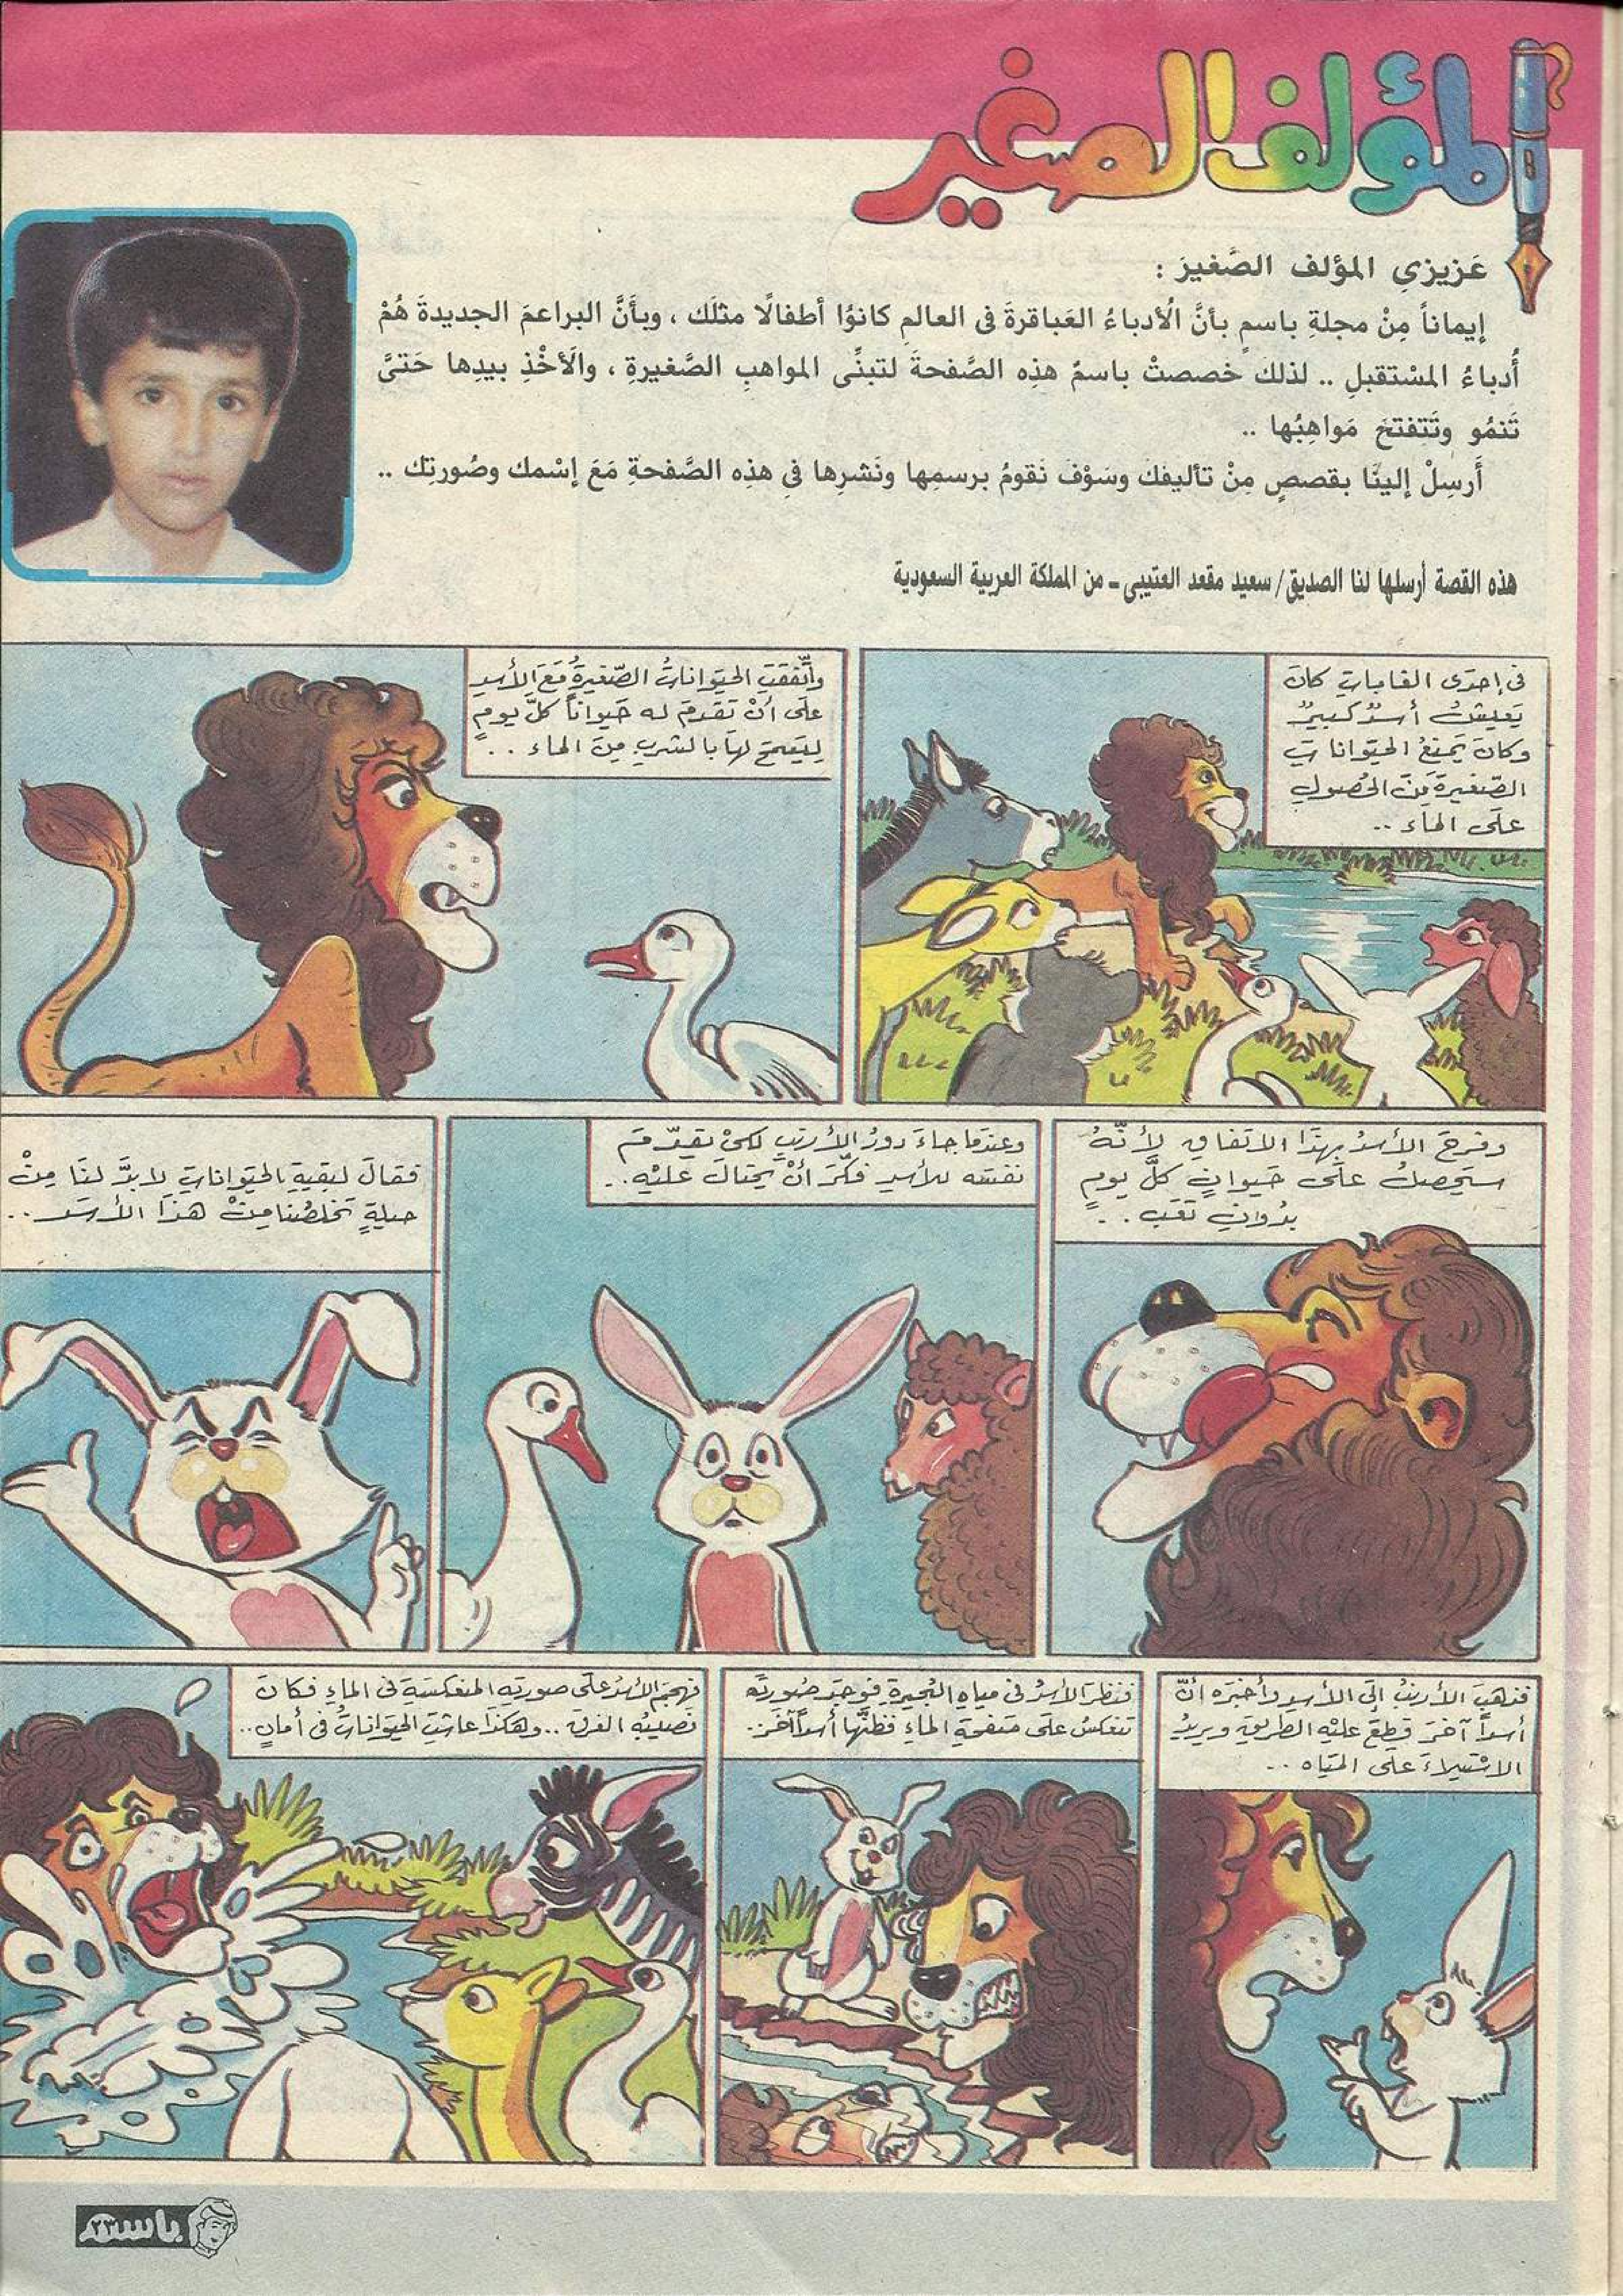 المؤلف الصغير
عَزيزي المؤلف الصَّغيرَ :
إيماناً مِنْ مجلةِ باسمٍ بأنَّ الُأدباءُ العَباقرةَ في العالمِ كانوُا أطفالًا مثلَك ، وبأَنَّ البراعمَ الجديدةَ هُمْ
أُدباءُ المسْتقبلِ .. لذلكَ خصصتْ باسمٌ هذِه الصَّفحةَ لتبنِّى المواهبِ الصَّغيرةِ ، والَأخْذِ بيدِها حَتىَّ
تَنمُو وتَتفتحَ مَواهِبُها ..
أَرسِلْ إلينَّا بقصصٍ مِنْ تأليفكَ وسَوْفَ نَقومُ برسمِها ونَشرِها فِي هذِه الصَّفحةِ مَعَ إسْمك وصُورتِك ..
هذه القصة أرسلها لنا الصديق / سعيد مقعد العتيبى ـ من المملكة العربية السعودية
فى إحدَى الغاباتِ كانَ
يَعيشُ أسدٌ كبيرٌ
وكانَ يَمنعُ الحيَواناتِ
الصّغيرةَ مِنَ الحُصولِ
علَى الماءِ ..
وأتّفقَتِ الحيَواناتُ الصّغيرةُ مَعَ الأسدِ
علَى أنْ تقدمَ له حَيواناً كلَّ يومٍ
ليَسمَحَ لهَا بالشربِ مِنَ الماء ..
وفرحَ الأسدُ بهذَا الاتفاقِ لأنّهُ
سيَحصلُ علَى حَيوانٍ كلَّ يومٍ
بدُوانِ تعَب ..
وعندَما جاءَ دورُ الأرنبِ لكىْ يقدّمَ
نفسَه للأسدِ فكّرَ أنْ يَحتالَ عليْهِ ..
فقالَ لبَقيةِ الحيَواناتِ لابدَّ لنَا مِنْ
حيلةٍ تُخلصُنا مِنْ هذَا الأسَدِ ..
فذهبَ الأرنبُ إلَى الأسدِ وأخبَره أنّ
أسداً آخرَ قطعَ عليْه الطريقَ ويريدُ
الاسْتيلاءَ علَى المَياه ..
فنظرَ الأسدُ فى مياهِ البُحيرةِ فوجَدَ صُورتَه
تنعَكسُ علَى صَفحةِ الماءِ فظنَّها أسداً آخَرَ ..
فهجَم الأسدُ علَى صورتِه المنعَكسَةِ فى الماءِ فكانَ
نَصيبُه الغرقَ .. وهكذَا عاشتِ الحيَواناتُ فى أمانٍ ..
باسم
٢٣